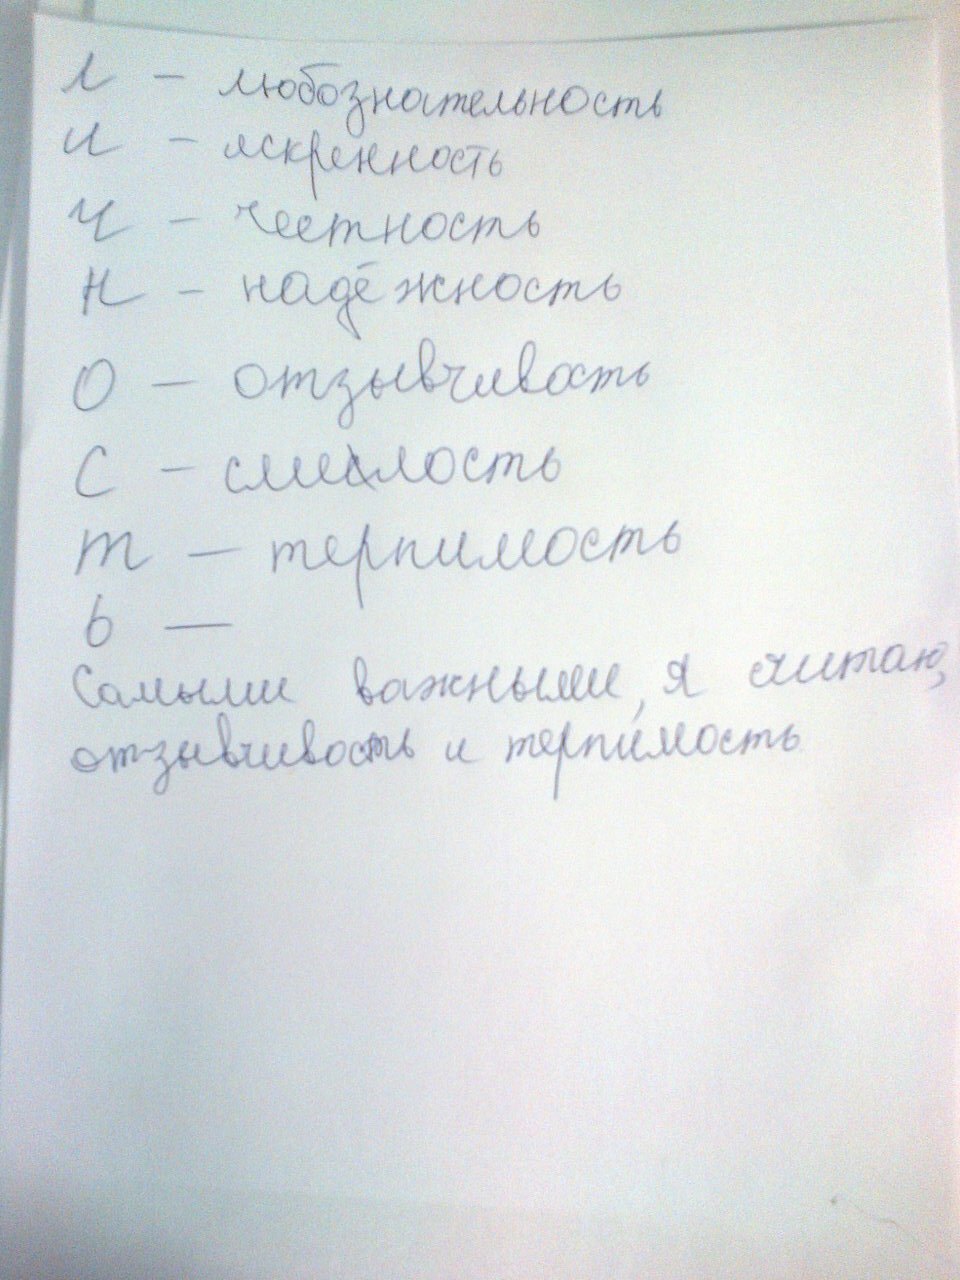 Л - любознательность
И - искренность
Ч - честность
Н - надёжность
О - отзывчивость
С - смелость
Т - терпимость
Ь -
Самыми важными, я считаю,
отзывчивость и терпимость